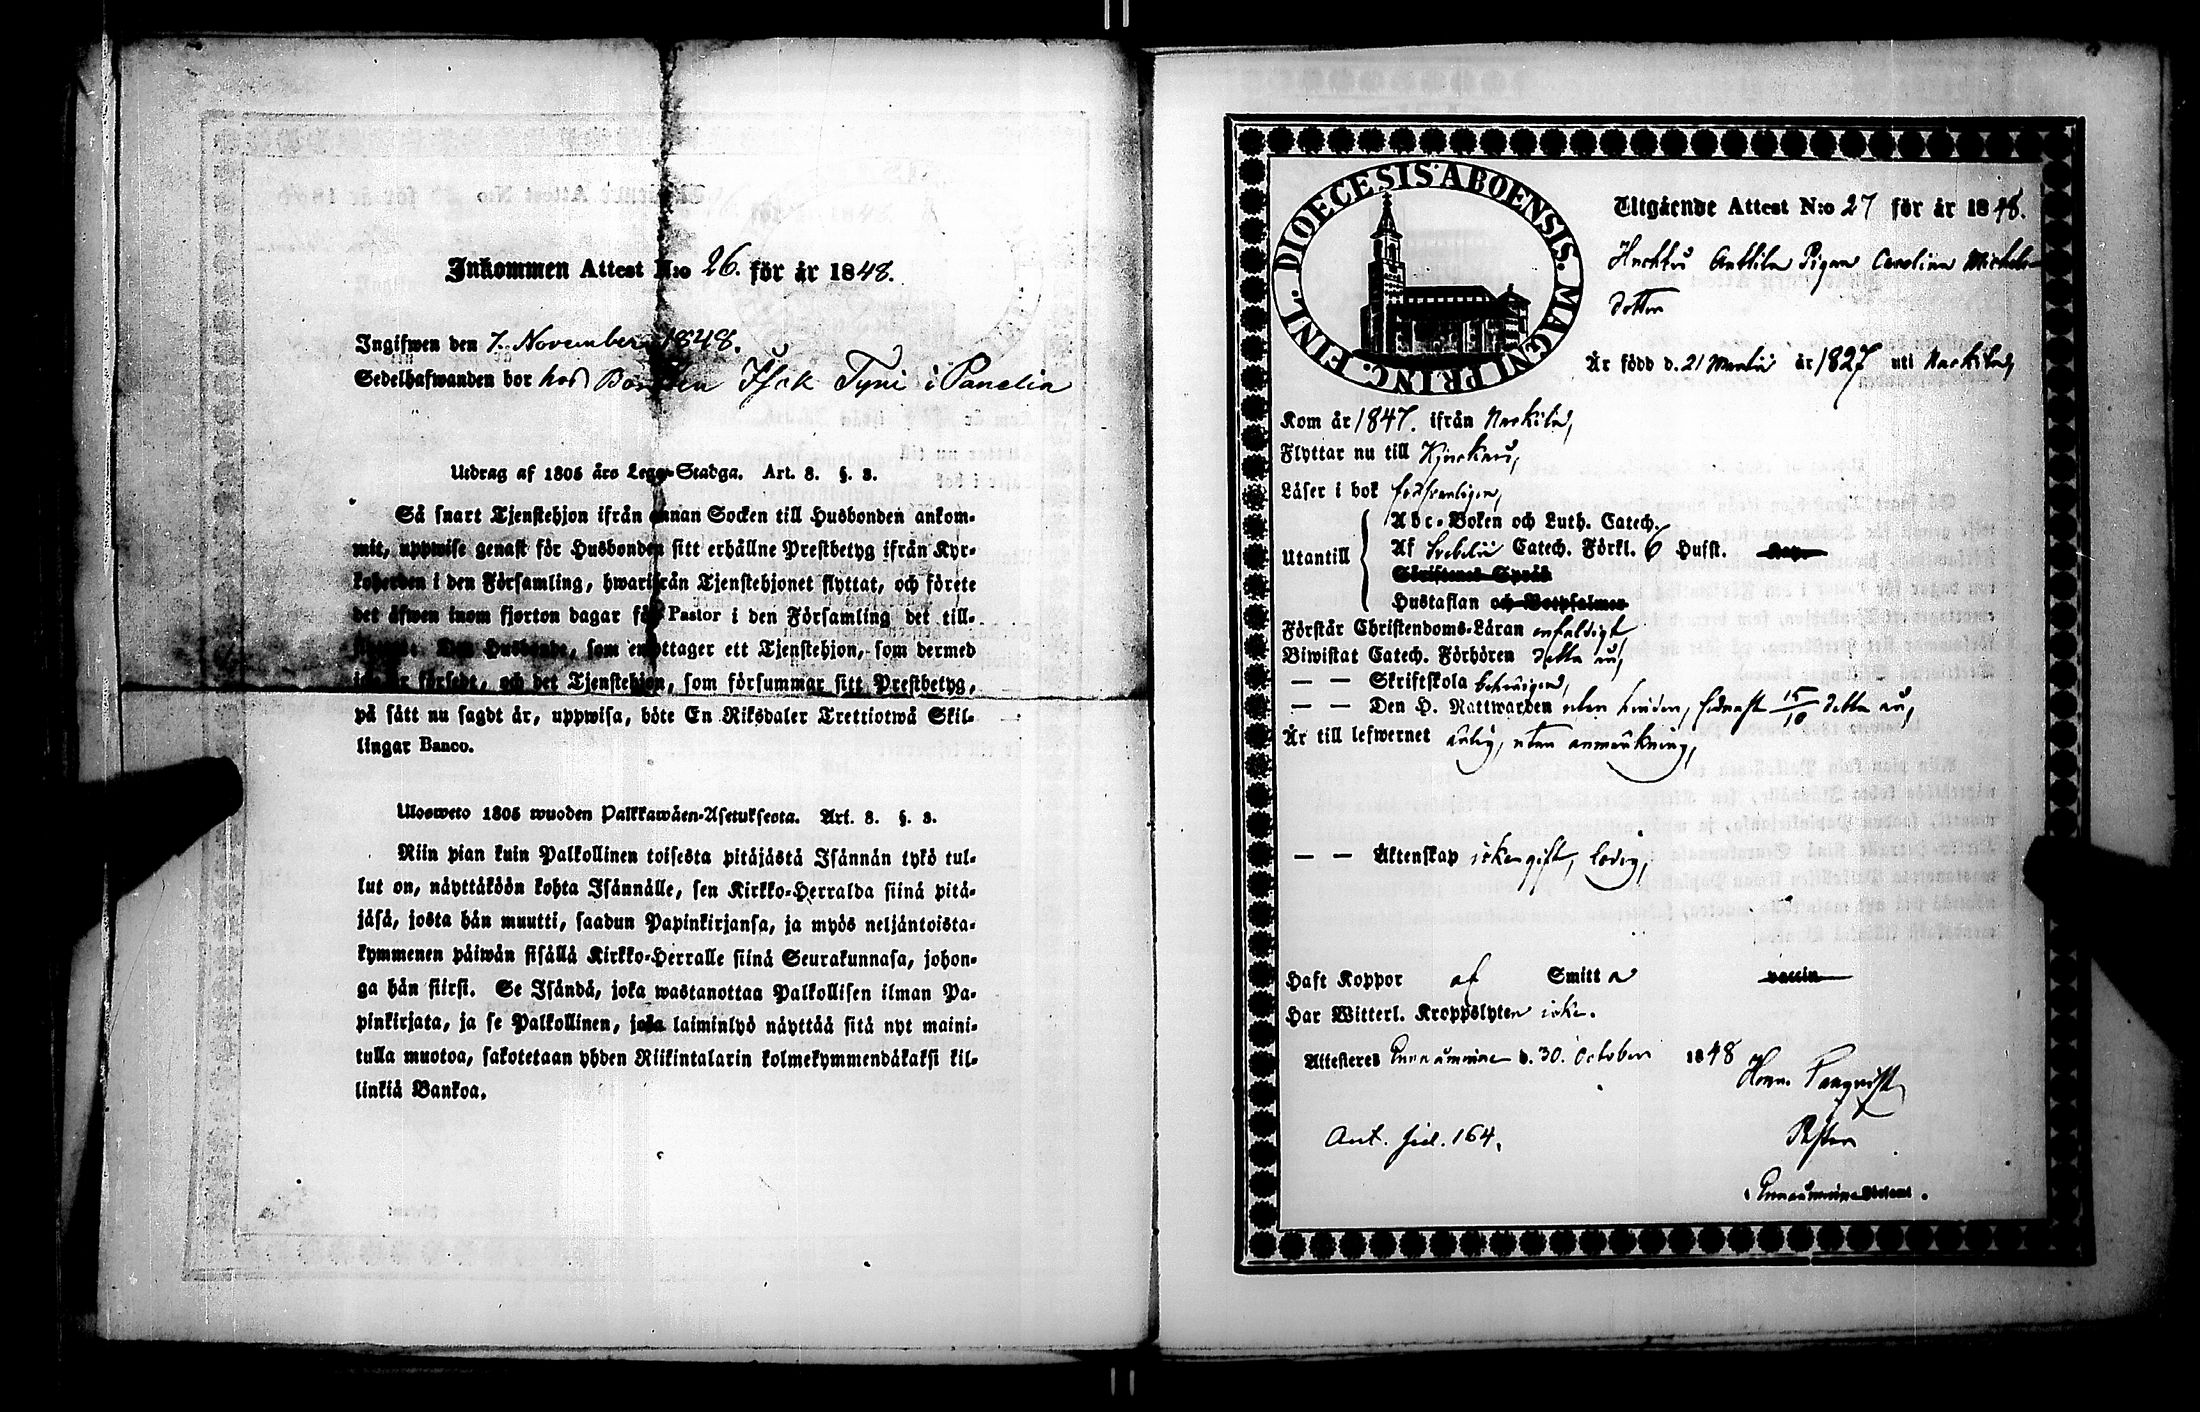 Inkommen Attest N:o 26. för år 1848.
Ingifwen den 7. November 1848.
Sedelhafwanden bor hos Bonden Isak Tyni i Panelia
Utdrag af 1805 års Lego-Stadga. Art. 8. §. 3.
Så snart Tjenstehjon ifrån annan Socken till Husbonden ankom-
mit, uppwise genast för Husbonden sitt erhållne Prestbetyg ifrån Kyr-
koherden i den Församling, hwarifrån Tjenstehjonet flyttat, och förete
det äfwen inom fjorton dagar för Pastor i den Församling det till-
Den Husbonde, som emottager ett Tjenstehjon, som dermed
icke är försedt, och det Tjenstehjon, som försummar sitt Prestbetyg,
på sätt nu sagdt är, uppwisa, böte En Riksdaler Trettiotwå Skil-
lingar Banco.
Ulosweto 1805 wuoden Palkkawäen-Asetuksesta. Art. 8. §. 3.
Niin pian kuin Palkollinen toisesta pitäjästä Isännän tykö tul-
lut on, näyttäköön kohta Isännälle, sen Kirkko-Herralda siinä pitä-
jäsä, josta hän muutti, saadun Papinkirjansa, ja myös neljäntoista-
kymmenen päiwän sisällä Kirkko-Herralle siinä Seurakunnasa, johon-
ga hän siirsi. Se Isändä, joka wastanottaa Palkollisen ilman Pa-
pinkirjata, ja se Palkollinen, joka laiminlyö näyttää sitä nyt maini-
tulla muotoa, sakotetaan yhden Riikintalarin kolmekymmendäkaksi kil-
linkiä Bankoa.
DIOECESIS ABOENSIS. MAGNI PRINC. FINL.
Utgående Attest N:o 27 för år 1848.
Anttila Pigan Carolina Michels-
dotter
Är född d. 21 Martii år 1827 uti Nakkila,
Kom år 1847. ifrån Nakkila,
Flyttar nu till Kjukais,
Läser i bok försvarligen,
Utantill
Abc-Boken och Luth. Catech.
Af Svebelii Catech. Förkl. 6 Hufst.
Skriftenes Språk
Hustaflan och Botpsalmer
Förstår Christendoms-Läran enfaldigt,
Biwistat Catech. Förhören detta år,
— — Skriftskola behörigen,
— — Den H. Nattwarden utan hinder, sednast 15/10 detta år,
Är till lefwernet ärlig, utan anmärkning,
— — Äktenskap icke gift, ledig,
Haft Koppor af Smitta vaccin
Har Witterl. Kroppslyten icke.
Attesteres d. 30. October 1848
Ant. fol. 164.
Pastor